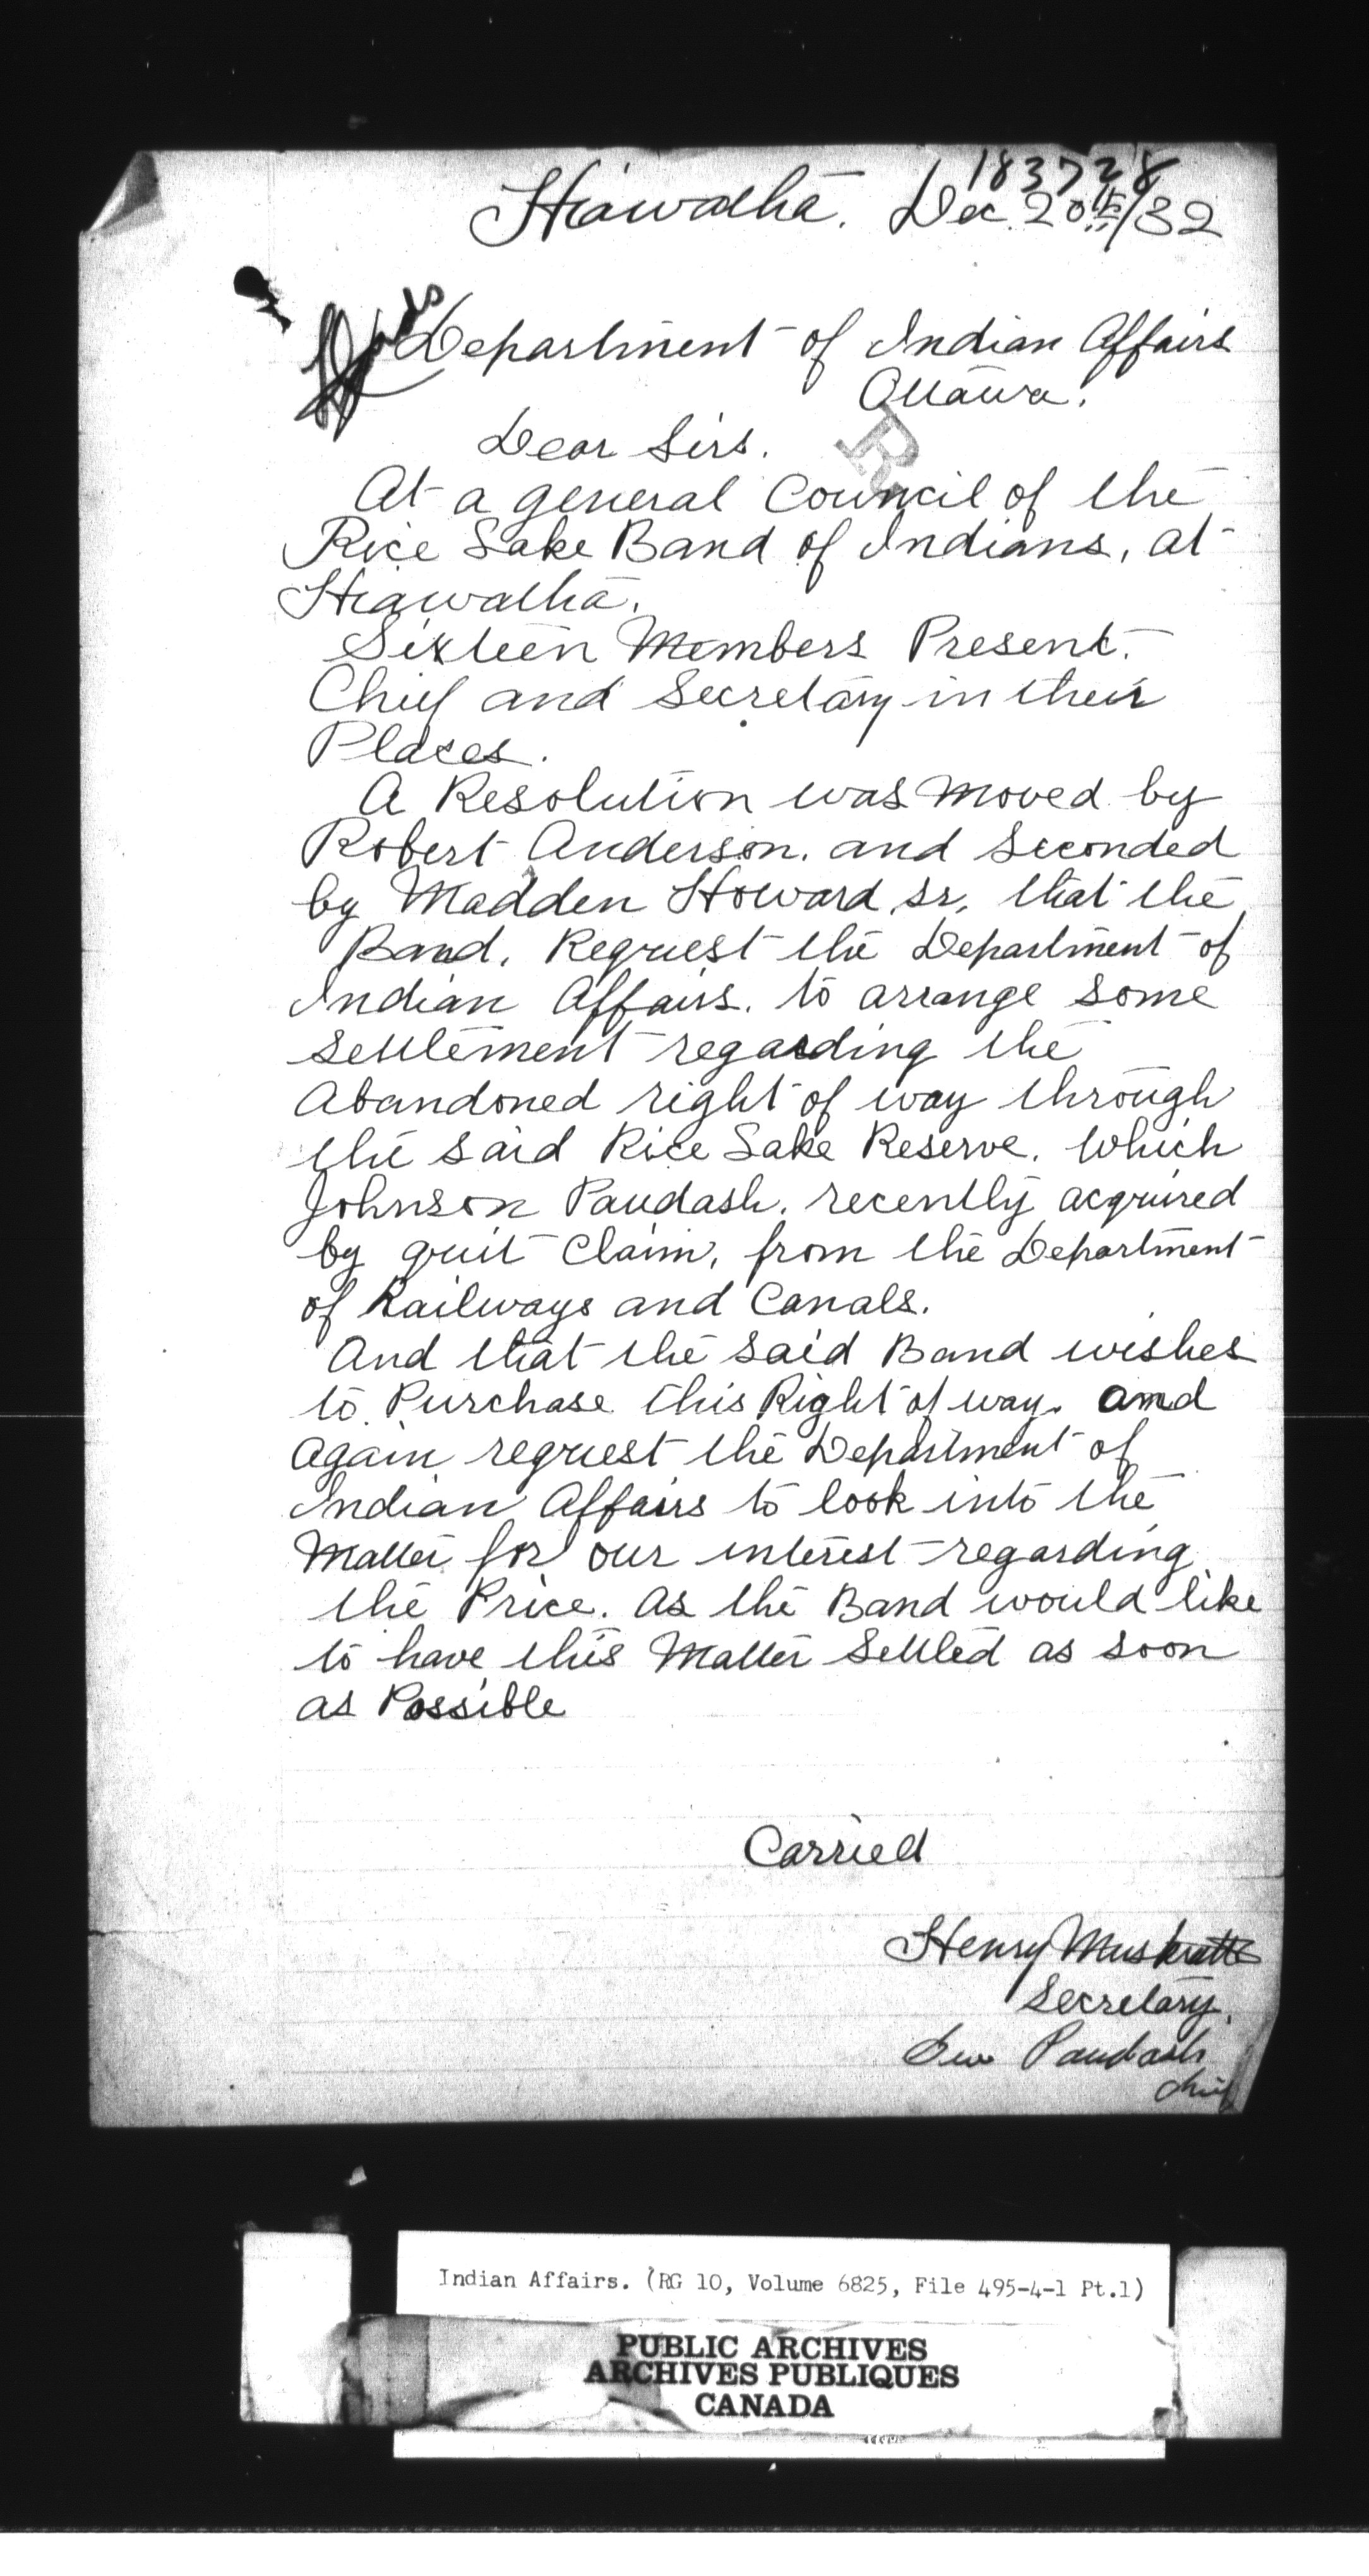 183728
Hiawatha. Dec. 20th/32
Lands
Department of Indian Affairs
Ottawa.
Dear Sirs.
R
At a general Council of the
Rice Lake Band of Indians, at
Hiawatha.
Sixteen Members Present.
Chief and Secretary in their
Places.
A Resolution was moved by
Robert Anderson. and Seconded
by Madden Howard, sr, that the
Band, Request the Department of
Indian Affairs. to arrange some
settlement regarding the
Abandoned right of way through
the said Rice Lake Reserve. Which
Johnson Paudash. recently acquired
by quit Claim, from the Department
of Railways and Canals.
And that the said Band wishes
to Purchase this Right of way. and
again request the Department of
Indian Affairs to look into the
Matter for our interest regarding
the Price. as the Band would like
to have this Matter Settled as soon
as Possible
Carried
Henry Muskratte
Secretary.
Paudash
Chief
Indian Affairs. (RG 10, Volume 6825, File 495-4-1 Pt.1)
PUBLIC ARCHIVES
ARCHIVES PUBLIQUES
CANADA